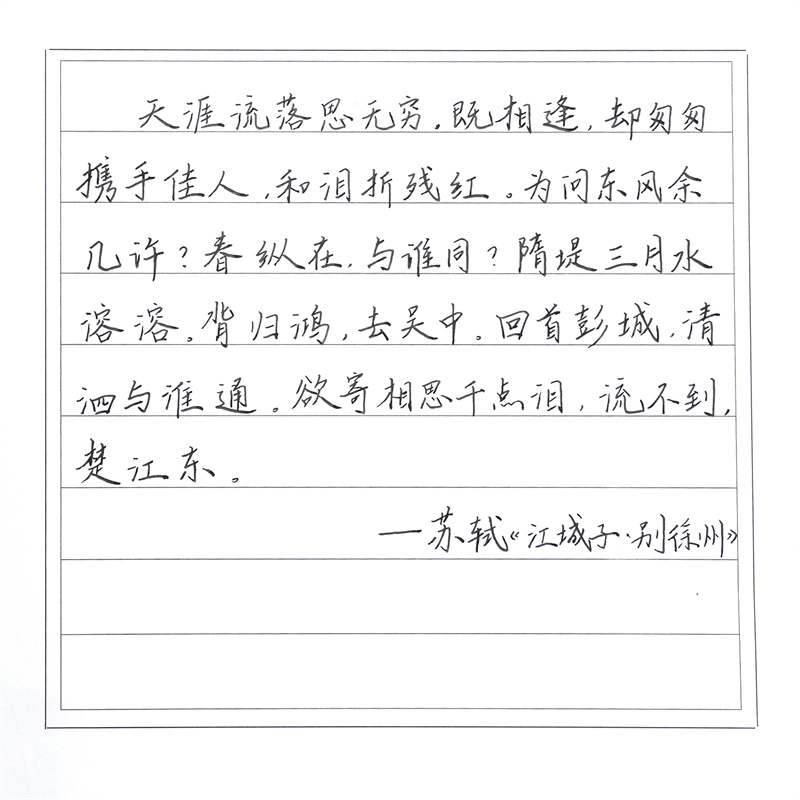 天涯流落思无穷。既相逢，却匆匆
携手佳人，和泪折残红。为问东风余
几许？春纵在，与谁同？隋堤三月水
溶溶。背归鸿，去吴中。回首彭城，清
泗与淮通。欲寄相思千点泪，流不到，
楚江东。
—苏轼《江城子·别徐州》